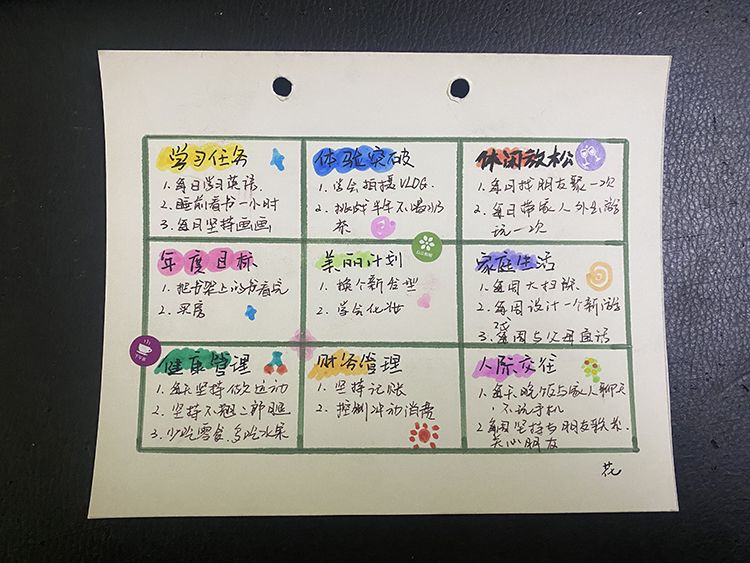 学习任务
1.每日学习英语.
2.睡前看书一小时
3.每月坚持画画
体验突破
1.学会拍摄VLOG.
2.挑战半年不喝奶
茶
休闲放松
1.每月找朋友聚一次
2.每月带家人外出游
玩一次
年度目标
1.把书架上的书看完
2.买房
美丽计划
1.换个新发型
2.学会化妆
家庭生活
1.每周大扫除
2.每周设计一个新游
戏
3.每周与父母通话
健康管理
1.每天坚持做运动
2.坚持不翘二郎腿
3.少吃零食.多吃水果
财务管理
1.坚持记账
2.控制冲动消费
人际交往
1.每天晚饭与家人聊天
,不玩手机
2.每周坚持与朋友联系.
关心朋友
花